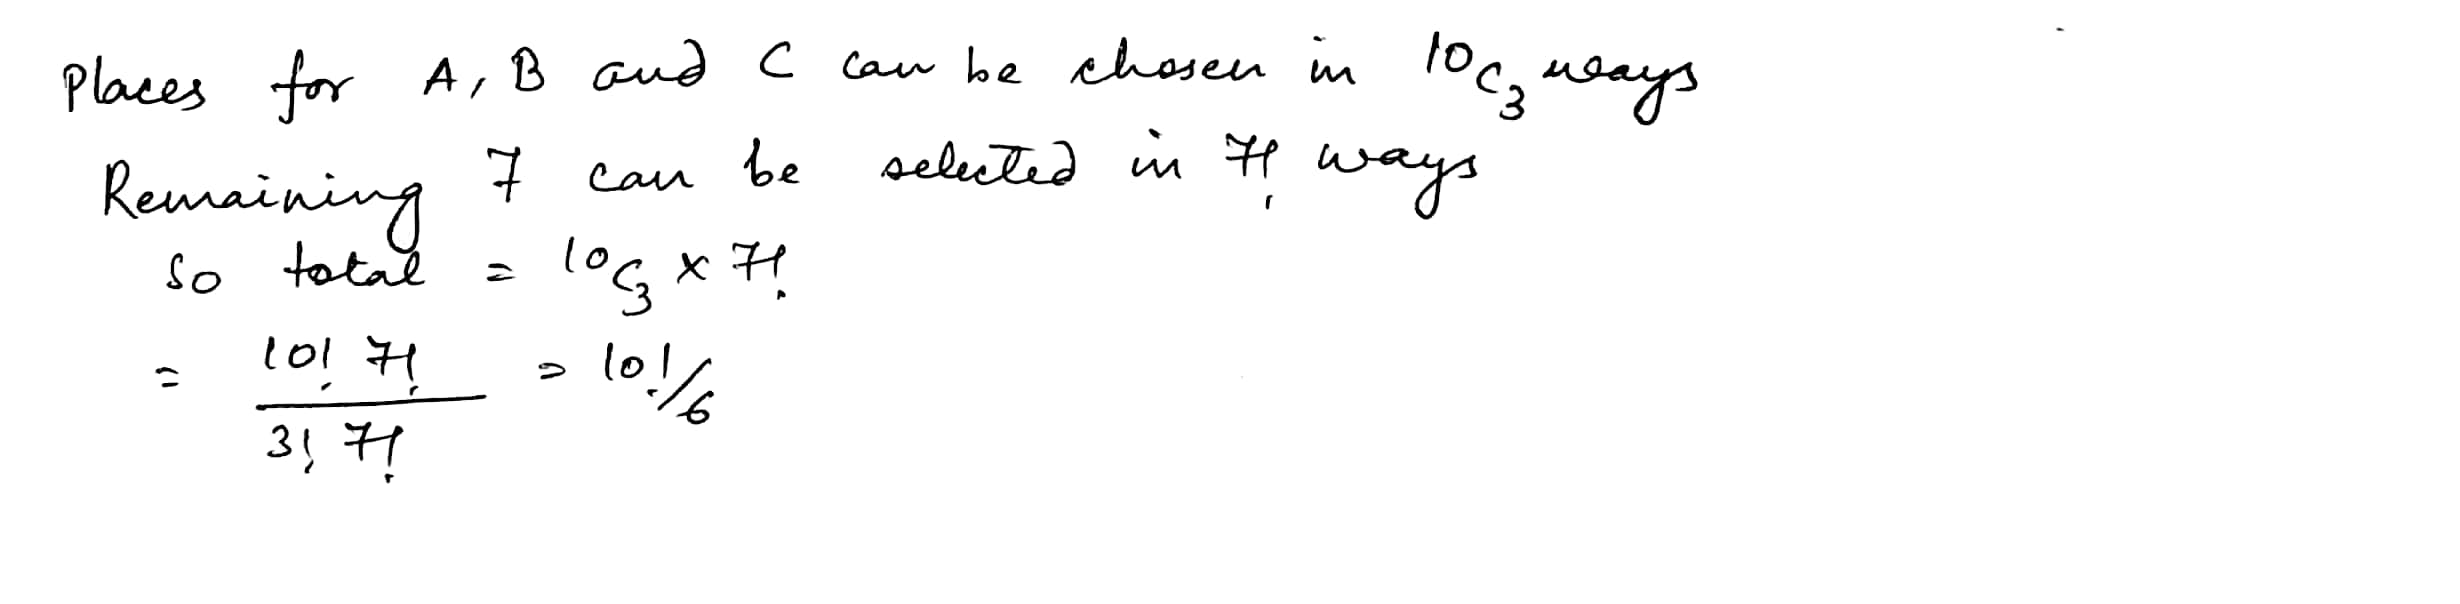 Places for A, B and C can be chosen in 10C3 ways
Remaining 7 can be selected in 7! ways
So total = 10C3 x 7!
= 10! 7! / 3! 7! = 10!/6